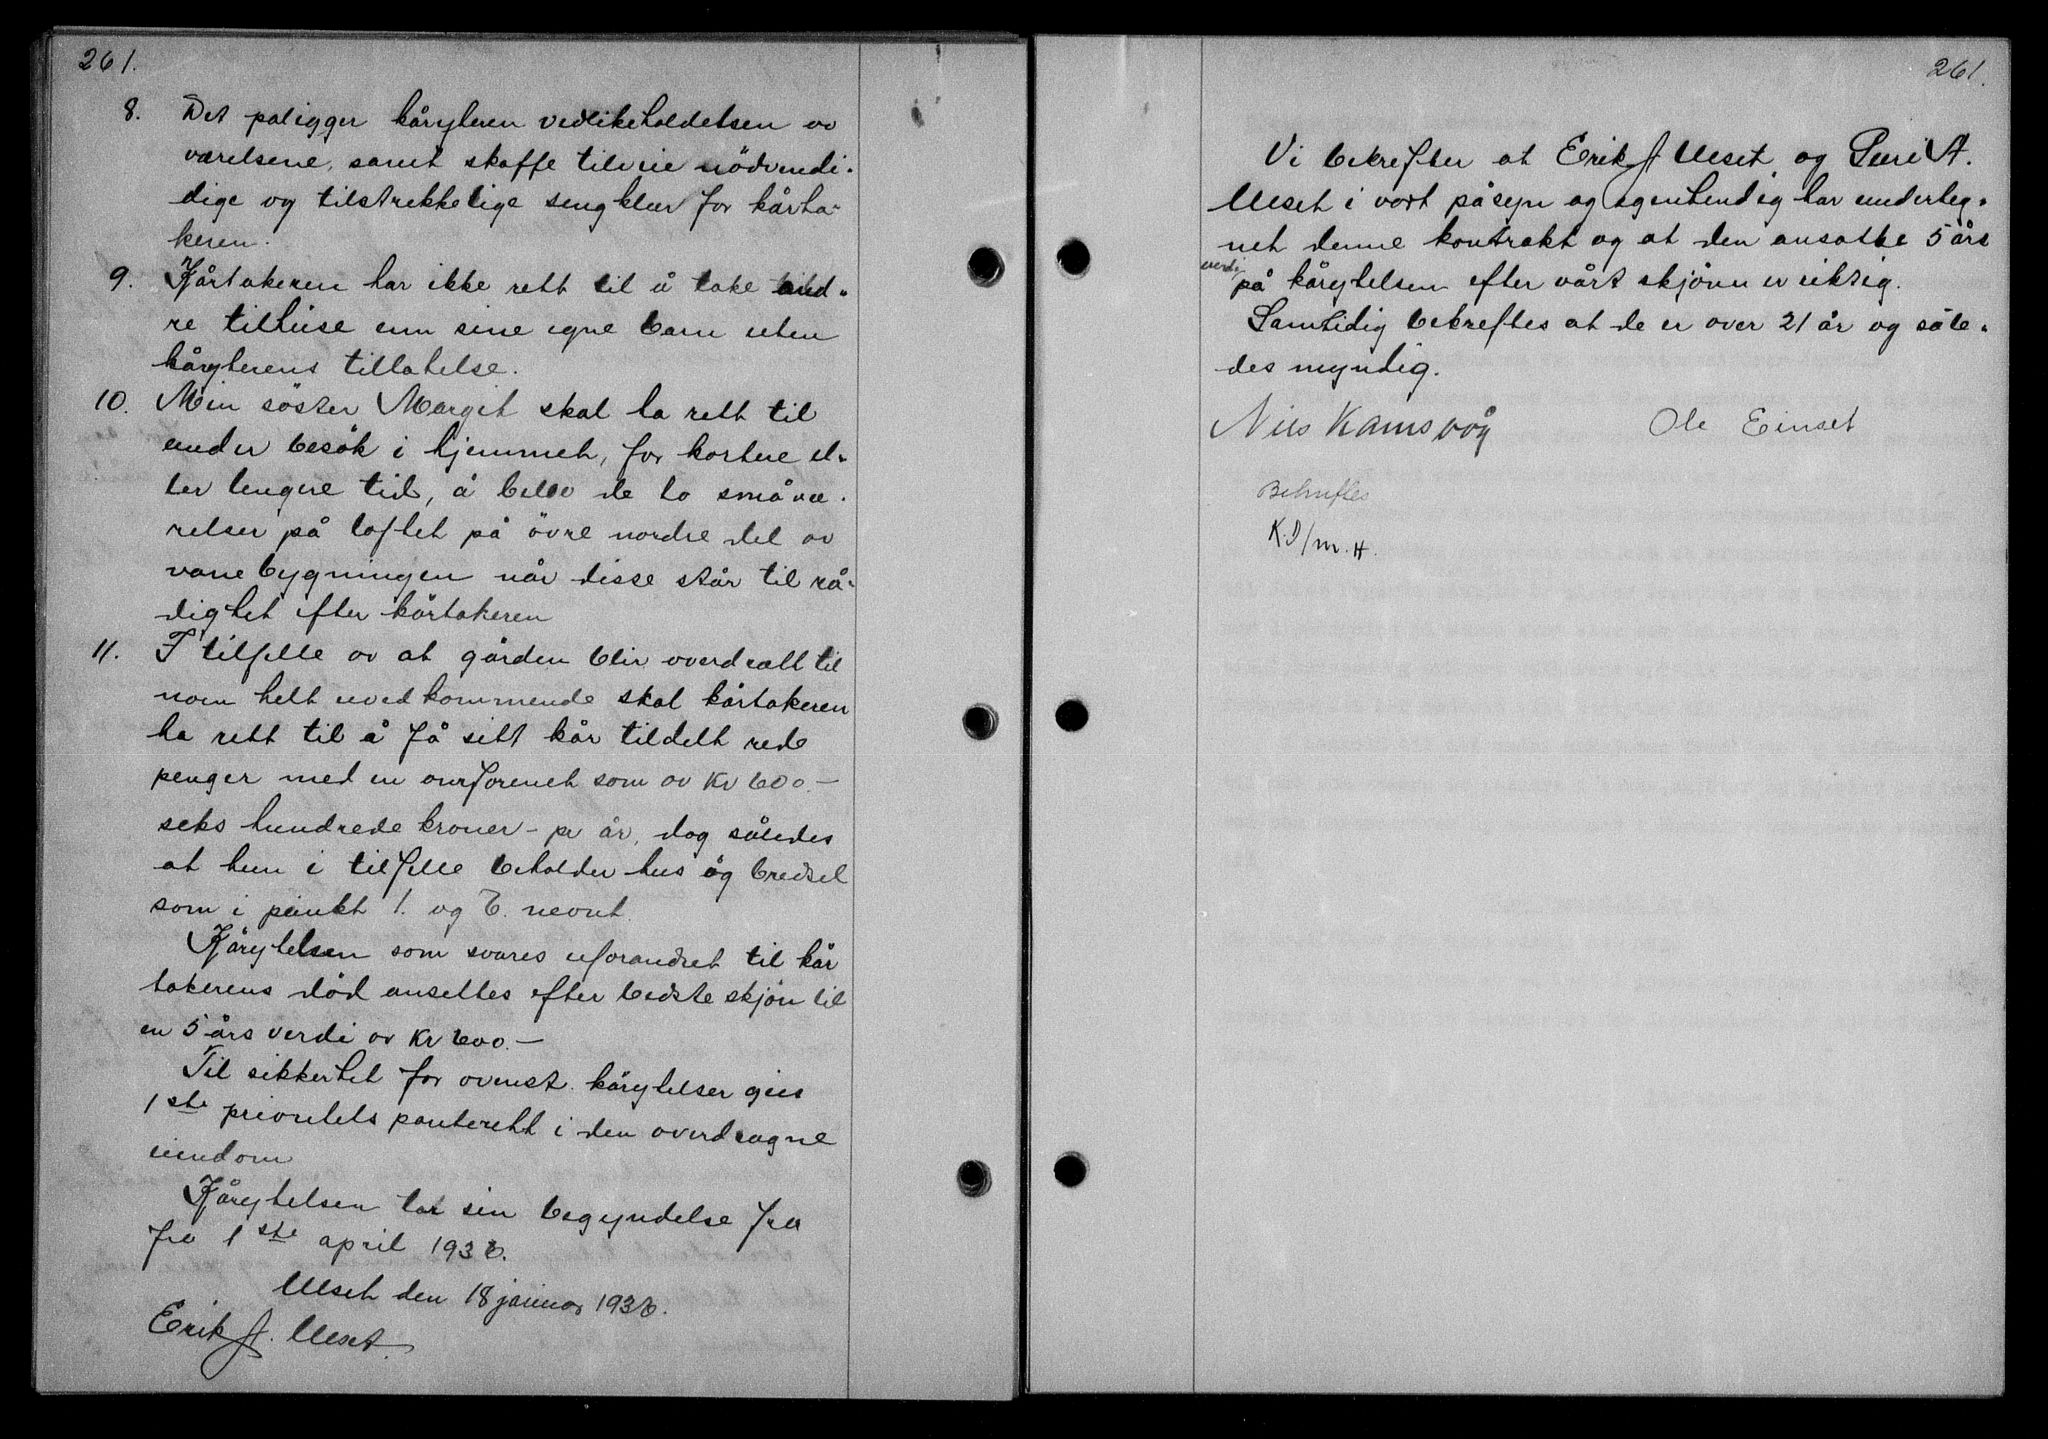 261.
8. Det paligger kåryteren vedlikeholdelsen av
værelsene, samt skaffe tilveie nödvendi-
dige og tilstrekkelige sengklær for kårta-
keren.
9. Kårtakeren har ikke rett til å take and-
re tilhuse enn sine egne barn uten
kåryterens tillatelse.
10. Min söster Margit skal ha rett til
under besök i hjemmet, for kortere el-
ler lengere tid, å bebo de to små væ-
relser på loftet på övre nordre del av
vånebygningen når disse står til rå-
dighet efter kårtakeren
11. I tilfelle av at gården blir overdratt til
noen helt uvedkommende skal kårtakeren
ha rett til å få sitt kår tildelt rede
penger med en omforenet som av Kr 600.-
seks hundrede kroner - pr år, dog således
at hun i tilfelle beholder hus og bredsel
som i punkt 1. og 6. nevnt.
Kårytelsen som svares uforandret til kår
takerens död ansettes efter bedste skjön til
en 5 års verdi av Kr 600.-
Til sikkerhet for ovenst. kårytelser gies
1ste prioritets panterett i den overdragne
eiendom
Kårytelsen tar sin begyndelse fra
fra 1ste april 1936.
Ulset den 18 januar 1936.
Erik J. Ulset.
261.
Vi bekrefter at Erik J Ulset og Guri A.
Ulset i vort påsyn og egenhendig har underteg-
net denne kontrakt og at den ansatte 5 års
verdi
på kårytelsen efter vårt skjönn er riktig.
Samtidig bekreftes at de er over 21 år og såle-
des myndig.
Nils Kamsvåg Ole Einset
Bekreftes
K.D/m.H.